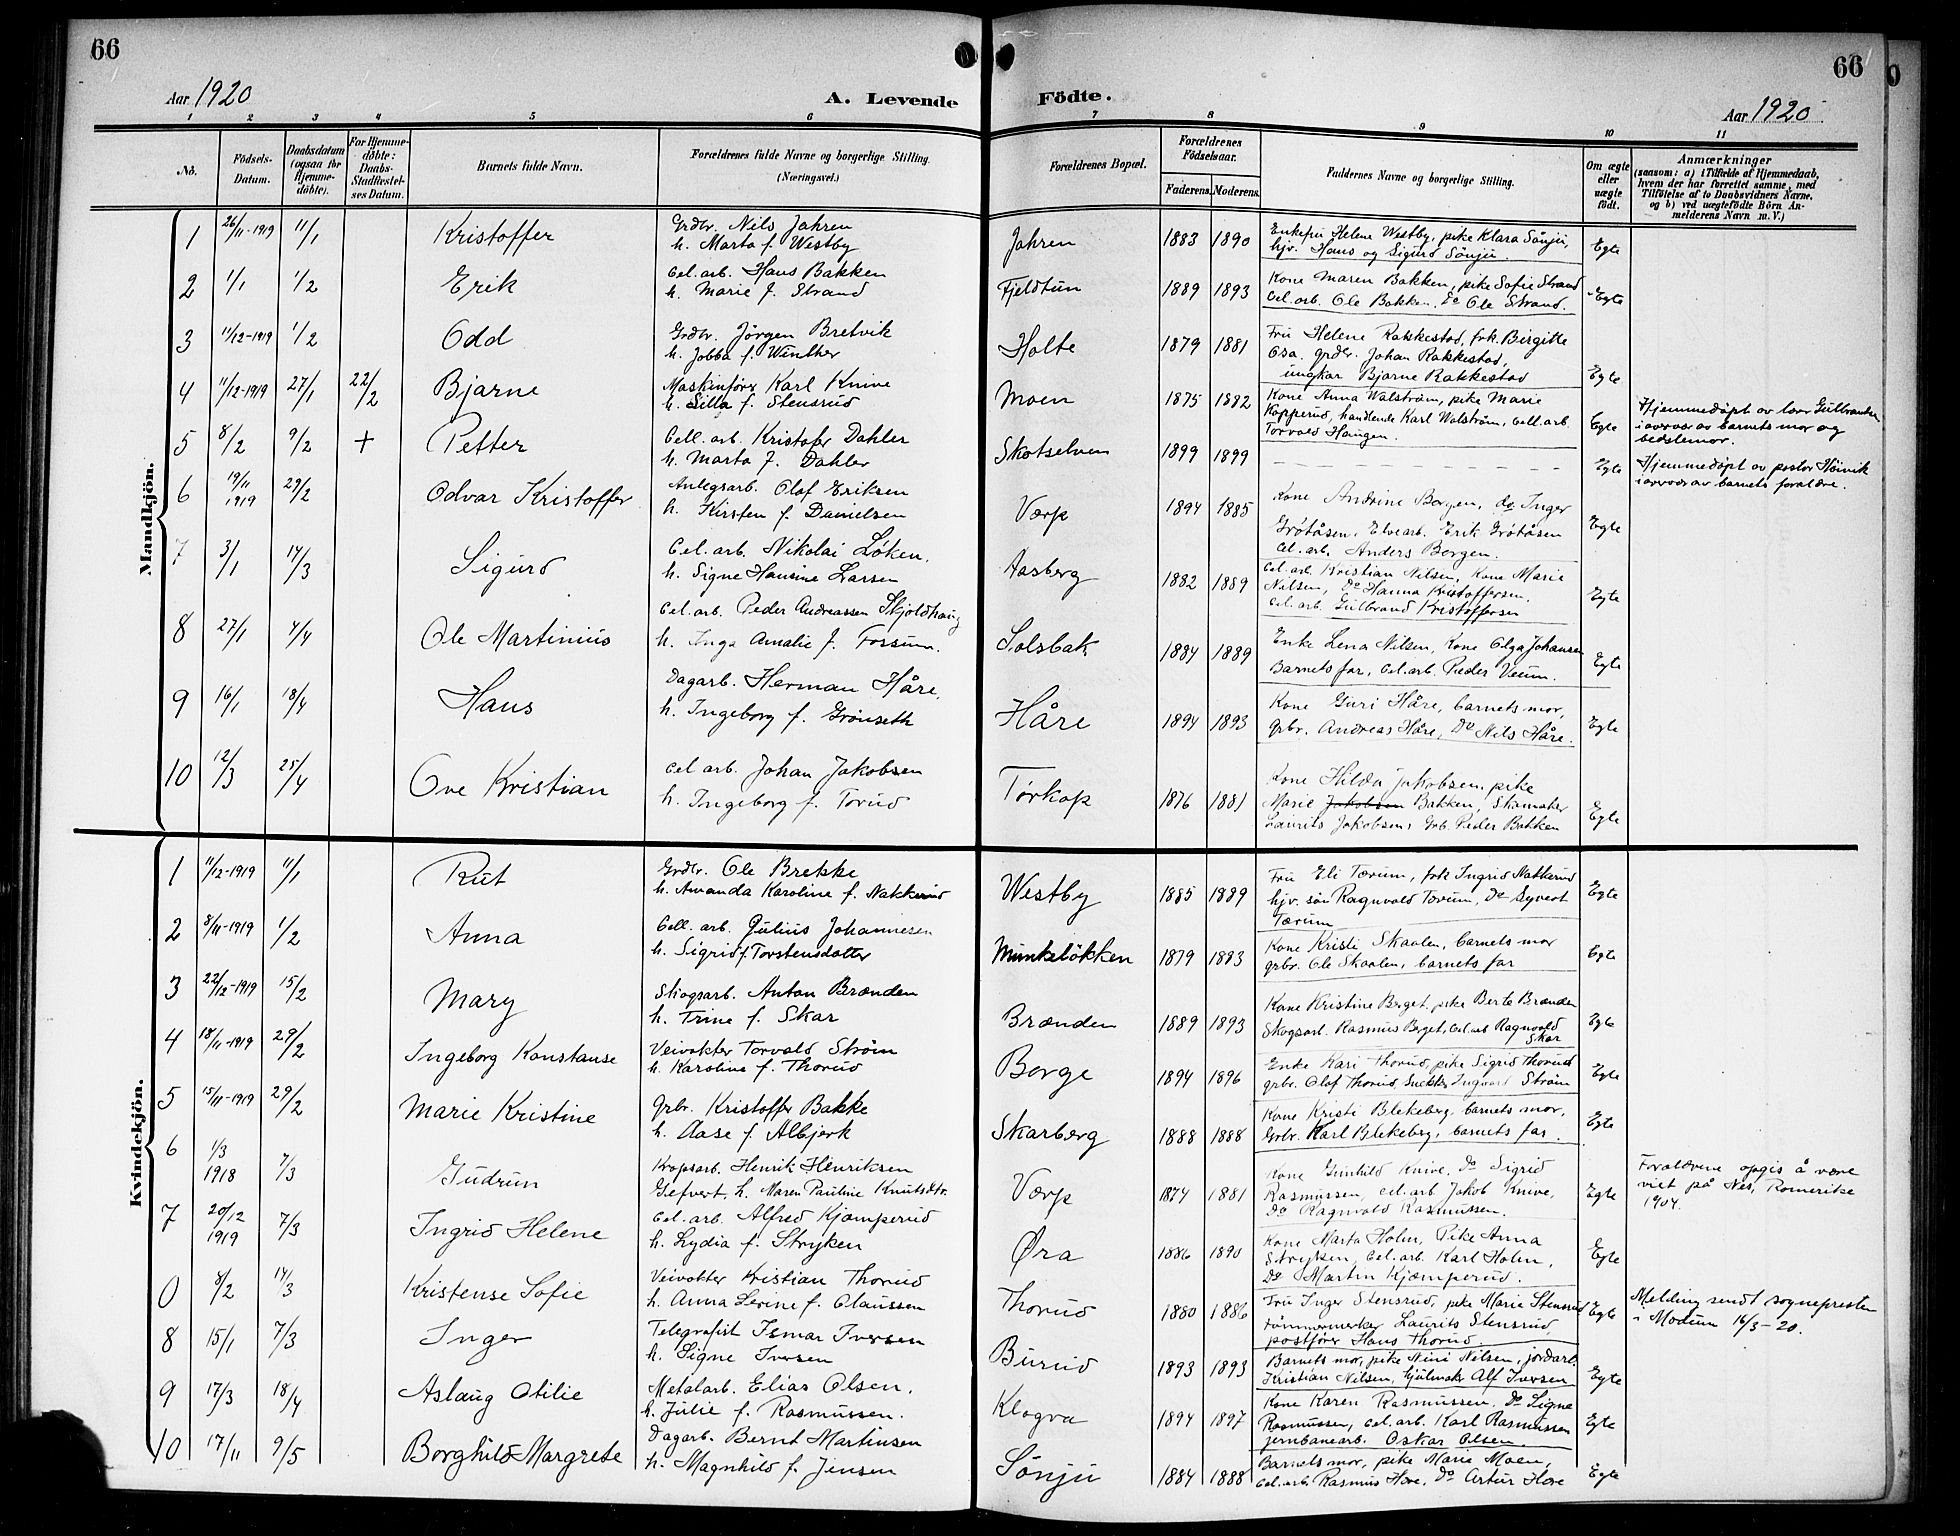 66
66
Aar 1920
A. Levende
Födte.
Aar 1920.
1 2 3 4 5 6 7 8 9 10 11
No.
Födsels-
Datum.
Daabsdatum
(ogsaa for
Hjemme-
döbte).
For Hjemme-
döbte:
Daabs-
Stadfæstel-
ses Datum.
Barnets fulde Navn.
Forældrenes fulde Navne og borgerlige Stilling.
(Næringsvei.)
Forældrenes Bopæl.
Forældrenes
Födselsaar.
Faderens.
Moderens.
Faddernes Navne og borgerlige Stilling.
Om ægte
eller
uægte
födt.
Anmærkninger
(saasom: a) i Tilfælde af Hjemmedaab,
hvem der har forrettet samme, med
Tilföielse af to Daabsvidners Navne,
og b) ved uægtefödte Börn An-
melderens Navn m. V.)
Mandkjön.
1 26/11-1919 11/1 Kristoffer
Grdbr. Nils Jahren
h. Marta f. Westby
Jahren 1883 1890
Enkefru Helene Westby, pike Klara Sönju,
hjv. Hans og Sigurd Sönju.
Egte
2 1/1 1/2 Erik
Cel. arb. Hans Bakken
h. Marie f. Strand
Fjeldtun 1889 1893
Kone Maren Bakken, pike Sofie Strand
Cel. arb. Ole Bakken. Do Ole Strand.
Egte
3 11/12-1919 1/2 Odd
Grdbr. Jörgen Bretvik
h. Jobba f. Winther
Holte 1879 1881
Fru Helene Rakkestad, frk. Birgitte
Osa. grdbr. Johan Rakkestad,
ungkar Bjarne Rakkestad
Egte
4 11/12-1919 27/1 22/2 Bjarne
Maskinfører Karl Knive
h. Silla f. Stensrud
Moen 1875 1882
Kone Anna Walström, pike Marie
Kopperud, handlende Karl Walström, cell. arb.
Torvald Haugen.
Egte
Hjemmedöpt av
i overvær av barnets mor og
bedstemor.
5 8/2 9/2 + Petter
Cell. arb. Kristofer Dahler
h. Marta f. Dahler
Skotselven 1899 1899
Egte
Hjemmedöpt av pastor Höivik
i overvær av barnets forældre.
6 19/11 1919 29/2 Odvar Kristoffer
Anlegsarb. Olaf Eriksen
h. Kirsten f. Danielsen
Værp 1894 1885
Kone Andrine Borgen, do Inger
Grötåsen, Elvearb. Erik Grötåsen
Cel. arb. Anders Borgen.
Egte
7 3/1 14/3 Sigurd
Cel. arb. Nikolai Löken.
h. Signe Hansine Larsen
Aasberg 1882 1889
Cel. arb. Kristian Nilsen, Kone Marie
Nilsen, Do Hanna Kristoffersen.
Cel. arb. Gulbrand Kristoffersen
Egte
8 27/1 4/4 Ole Martinius
Cel. arb. Peder Andreassen Skjoldhaug
h. Inga Amalie f. Fossum.
Solsbak 1884 1889
Enke Lena Nilsen, Kone Olga Johansen
Barnets far, Cel. arb. Peder Veum.
Egte
9 16/1 18/4 Hans
Dagarb. Herman Håre.
h. Ingeborg f. Grönseth
Håre 1894 1893
Kone Guri Håre, barnets mor,
grbr. Andreas Håre, Do Nils Håre.
Egte
10 12/3 25/4 Ove Kristian
Cel arb. Johan Jakobsen
h. Ingeborg f. Torud
Törkop 1876 1881
Kone Hilda Jakobsen, pike
Marie Jakobsen Bakken, Skomaker
Laurits Jakobsen, Grb. Peder Bakken
Egte
Kvindekjön.
1 11/12-1919 11/1 Rut
Grdbr. Ole Brekke
h. Amanda Karoline f. Nakkerud
Westby 1885 1889
Fru Eli Tærum, frk Ingrid Nakkerud
hjv. sön Ragnvald Tærum, Do Syvert
Tærum
Egte
2 8/11-1919 1/2 Anna
Cell. arb. Julius Johannesen
h. Sigrid f. Torstensdatter
Munkelökken 1879 1883
Kone Kristi Skaalen, barnets mor
grbr. Ole Skaalen, barnets far
Egte
3 22/12-1919 15/2 Mary
Skogsarb. Anton Brænden
h. Trine f. Skar
Brænden 1889 1893
Kone Kristine Berget, pike Berte Brænden
Skogsarb. Rasmus Berget, Cel. arb Ragnvald
Skar
Egte
4 18/11-1919 29/2 Ingeborg Konstanse
Veivokter Torvald Ström
h. Karoline f. Thorud
Borge 1894 1896
Enke Kari Thorud, pike Sigrid Thorud
grbr. Olaf Thorud, Snekker Ingvard Ström
Egte
5 15/11-1919 29/2 Marie Kristine
Grbr. Kristoffer Bakke
h. Aase f. Albjerk
Skarberg 1888 1888
Kone Kristi Blekeberg, barnets mor,
Grbr. Karl Blekeberg, barnets far.
Egte
6 1/3 1918 7/3 Gudrun
Kopsarb. Henrik Henriksen
Gefvert, h. Maren Pauline Knutsdtr.
Værp 1874 1881
Kone Gunhild Knive, Do Sigrid
Rasmussen, Cel. arb Jakob Knive,
Do Ragnvald Rasmussen.
Egte
Forældrene opgis å være
viet på Nes, Romerike
1904.
7 20/12 1919 7/3 Ingrid Helene
Cel. arb. Alfred Kjæmperud
h. Lydia f. Stryken
Öra 1886 1890
Kone Marta Holm, Pike Anna
Stryken, Cel. arb. Karl Holm,
Do Martin Kjæmperud.
Egte
0 8/2 14/3 Kristense Sofie
Veivokter Kristian Thorud
h. Anna Serine f. Claussen
Thorud 1880 1886
Fru Inger Stensrud, pike Marie Stensrud
tömmermerker Laurits Stensrud,
postförer Hans Thorud
Egte
Melding sendt sognepresten
i Modum 16/3-20.
8 15/1 7/3 Inger
Telegrafist Ismar Iversen
h. Signe Iversen
Burud 1893 1893
Barnets mor, pike Nini Nilsen, jordarb.
Kristian Nilsen, hjulmaker Alf Iversen
Egte
9 17/3 18/4 Aslaug Otilie
Metalarb. Elias Olsen.
h. Julie f. Rasmussen.
Klogva 1894 1897
Kone Karen Rasmussen, Do Signe
Rasmussen, cel. arb. Karl Rasmussen
jernbanearb. Oskar Olsen.
Egte
10 17/11 9/5 Borghild Margrete
Dagarb. Bernt Martinsen
h. Magnhild f. Jensen
Sönju 1884 1888
Barnets mor, pike Marie Moen,
Cel. arb. Rasmus Hove, Do Artur Hove
Egte